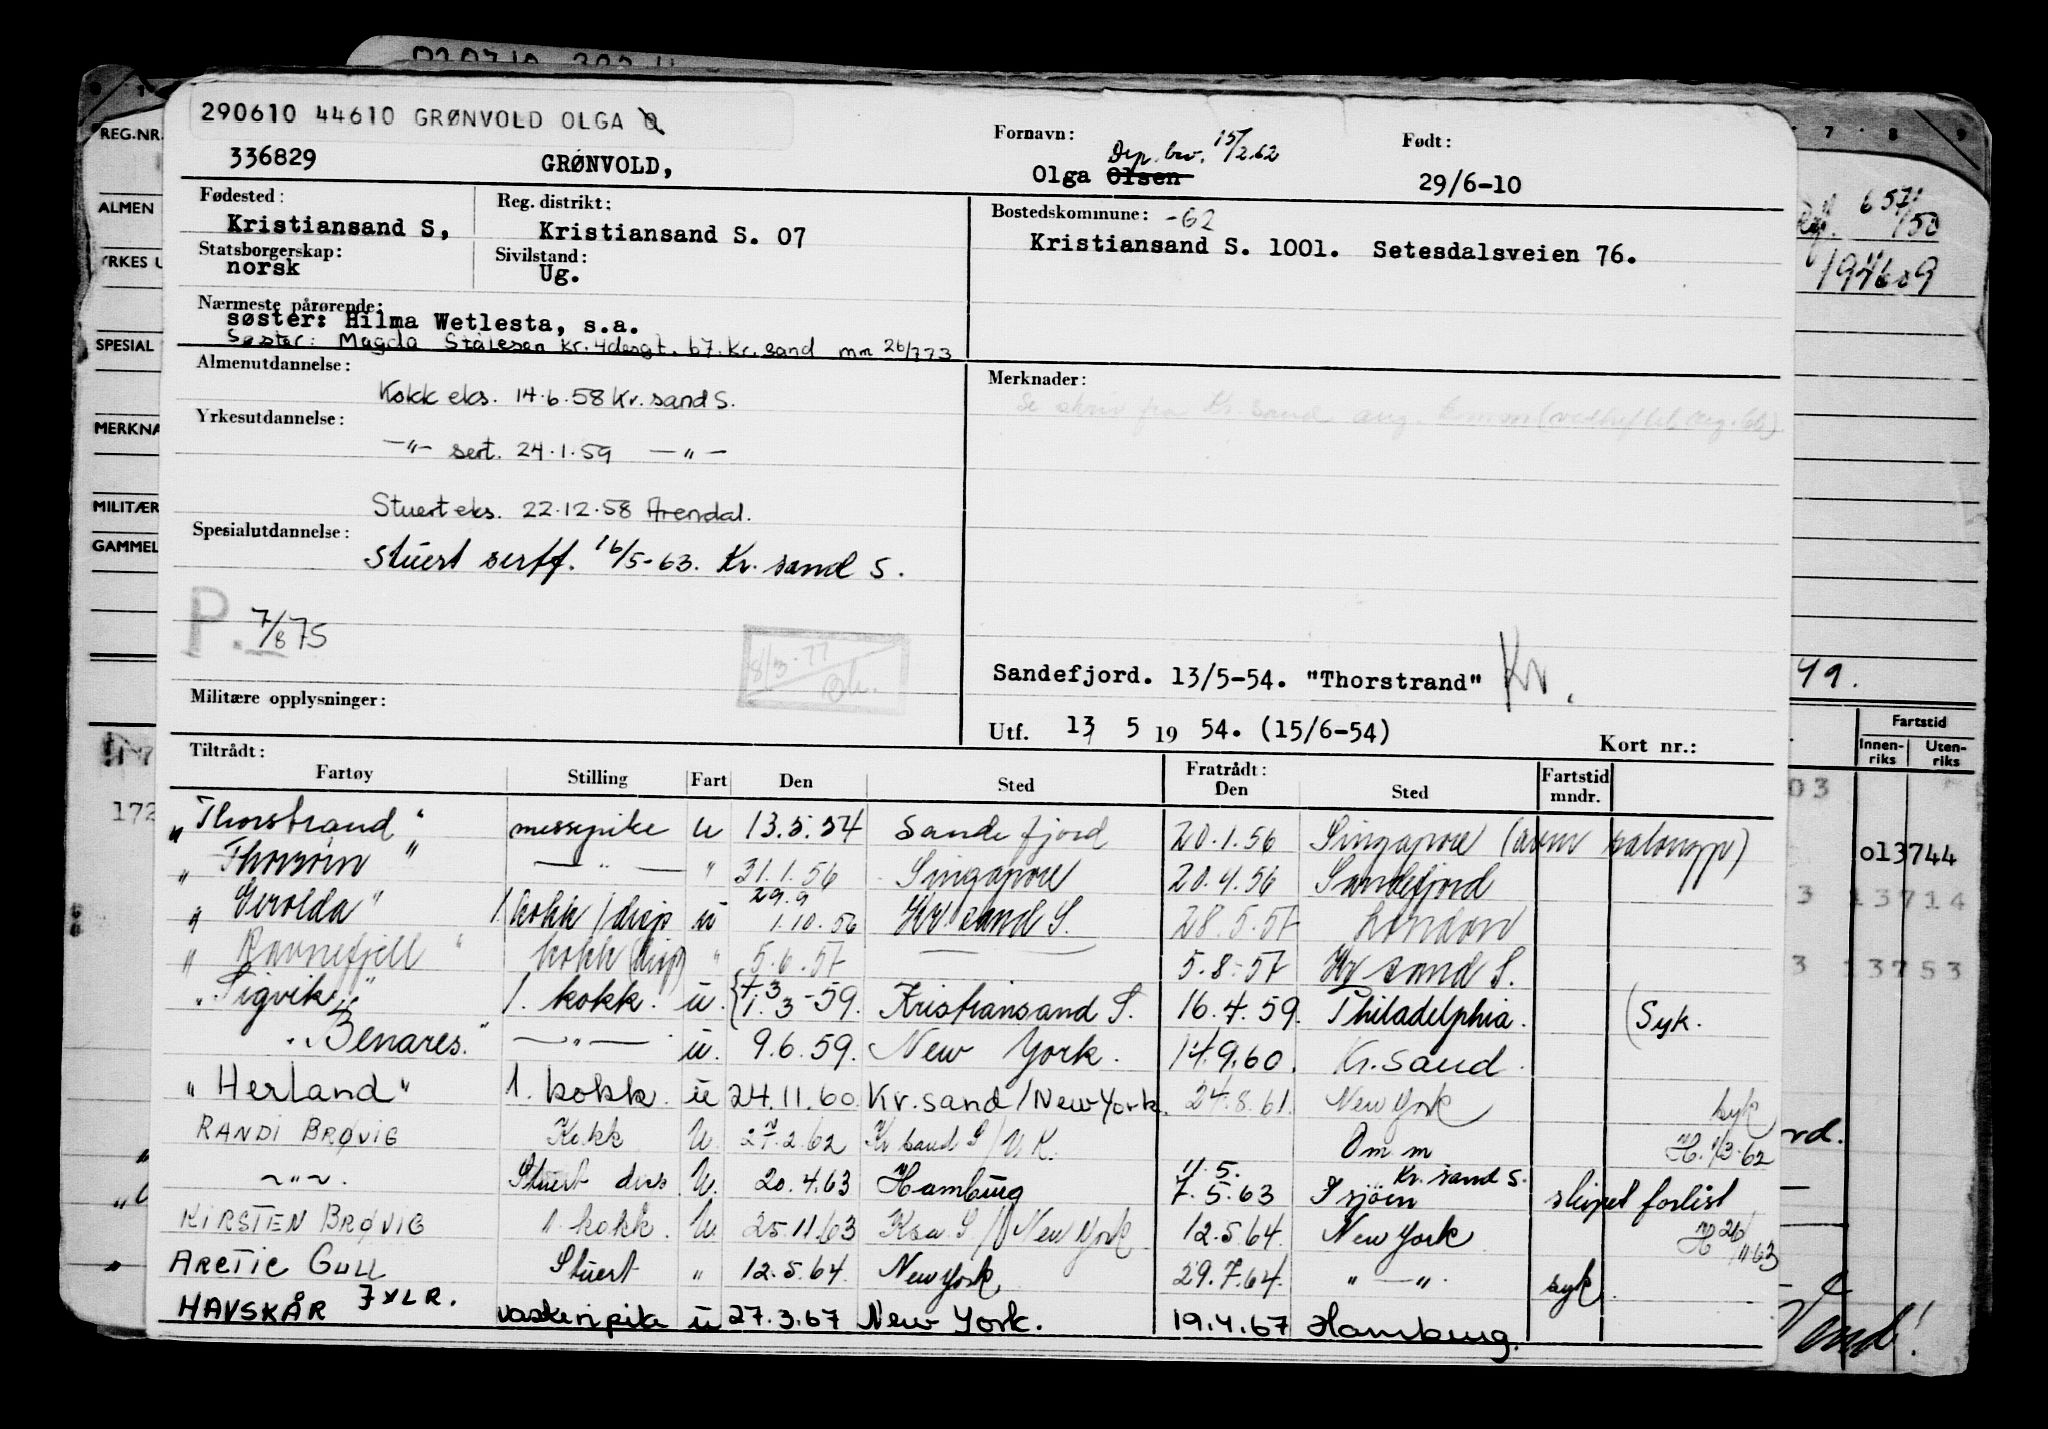 290610 44610 GRØNVOLD OLGA O
336829 GRØNVOLD,
Fornavn: Dep. brv. 15/2.62 Født:
Olga Olsen 29/6-10
Fødested: Reg. distrikt: Bostedskommune: -62
Kristiansand S, Kristiansand S. 07 Kristiansand S. 1001. Setesdalsveien 76.
Statsborgerskap: Sivilstand:
norsk Ug.
Nærmeste pårørende:
søster: Hilma Wetlesta, s.a.
Søster: Magda Stålesen Kr. 4desgt. 67. Kr. sand mm 26/773
Almenutdannelse: Merknader:
Kokk eks. 14.6.58 Kr. sand S.
Yrkesutdannelse:
—"— sert. 24.1.59 —"—
Stuert eks. 22.12.58 Arendal.
Spesialutdannelse:
Stuert sertf. 16/5-63. Kr. sand S.
P. 7/8 75
8/3.77
Sandefjord. 13/5-54. "Thorstrand" Kr.
Militære opplysninger:
Utf. 13 5 19 54. (15/6-54) Kort nr.:
Tiltrådt: Fratrådt:
Fartøy Stilling Fart Den Sted Den Sted Fartstid mndr.
"Thorstrand" messepike u 13.5.54 Sandefjord 20.1.56 Singapore
"Thorsøin" —"— " 31.1.56 Singapore 20.4.56 Sandefjord
29.9
"Gerolda" 1. kokk (disp u 1.10.56 Kr sand S. 28.5.57 London
"Ravnefjell" kokk (disp) " 5.6.57 — 5.8.57 Kr sand S.
"Sigvik" 1. kokk. u. 1.3-59. Kristiansand S. 16.4.59. Philadelphia. (Syk.
"Benares." —"— u. 9.6.59. New York. 14.9.60. Kr. sand.
"Herland" 1. kokk. u 24.11.60 Kr. sand/New York. 24.8.61. New York syk
RANDI BRØVIG Kokk U. 27.2.62 Kr sand S/N.Y. Om. m H. 1/3-62
—"—. Stuert dis U. 20.4.63 Hamburg 11.5. 7.5.63 Kr. sand S. I sjøen skipet forlist
KIRSTEN BRØVIG 1. kokk U. 25.11.63 Ksa S/New York 12.5.64. New York H 26/11 63
ARCTIC GULL Stuert " 12.5.64. New York 29.7.64. " — ". syk.
HAVSKÅR JXLR. vaskeripike u 27.3.67 New York. 19.4.67 Hamburg.
REG.NR.
ALMEN
YRKES U
SPESIAL
MERKNA
MILITÆR
GAMMEL
172
7 8 9
657/50
194609
49.
Fartstid
Innenriks Utenriks
03
013744
3 13714
3 13753
Vend!